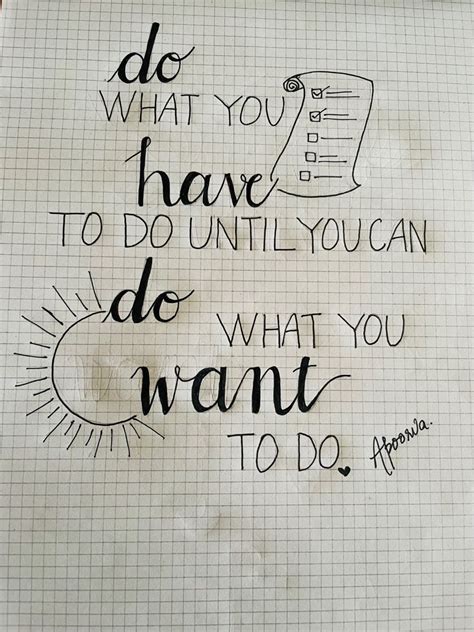 do
WHAT YOU
have
TO DO UNTIL YOU CAN
do
WHAT YOU
want
TO DO.
Apoorva.